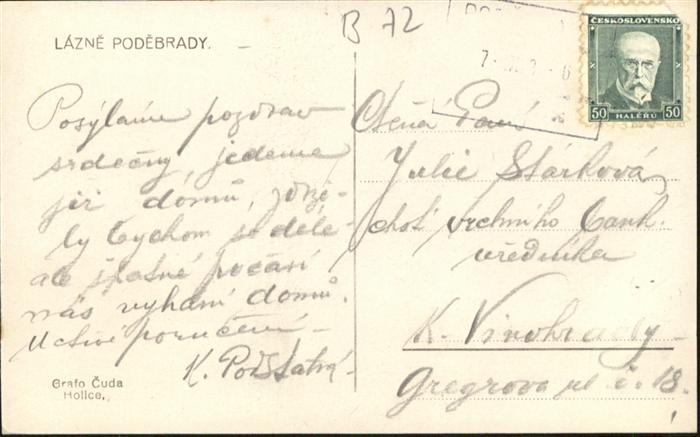 B 72
LÁZNĚ PODĚBRADY.
ČESKOSLOVENSKO
50 HALÉŘŮ 50
Posýláme pozdrav
srdečný, jedeme
již domů, zdrže-
ly bychom se déle
ale špatné počasí
nás vyhání domů.
Uctivé poručení
K. Podstatná
Grafo Čuda
Holice.
Ctěná Paní
Julie Stárková
choť vrchního bank.
úředníka
K. Vinohrady
Gregrova ul č. 18.